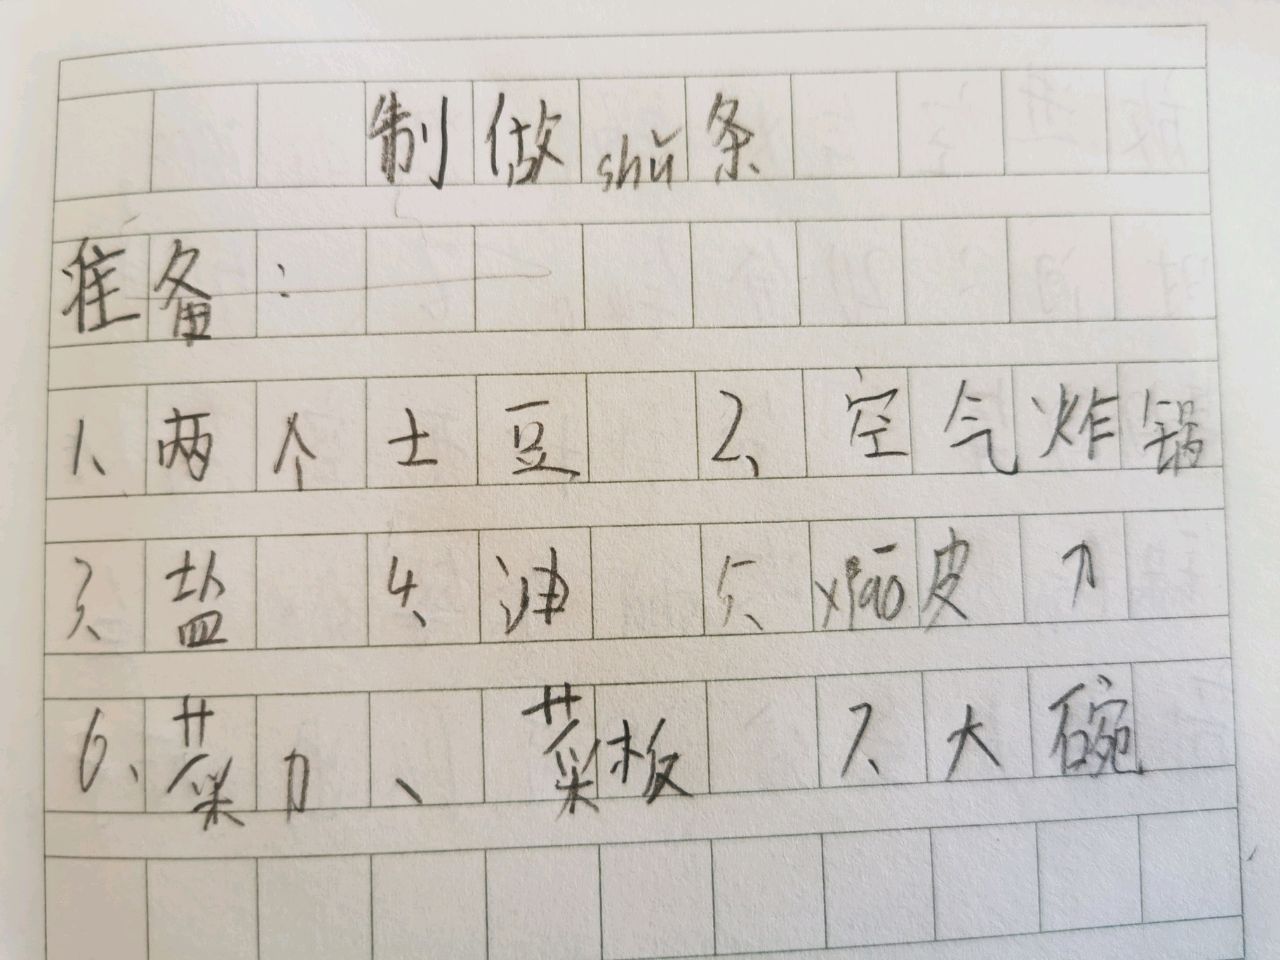 制做shǔ条
准备:
1、两个土豆 2、空气炸锅
3、盐 4、油 5、xiāo皮刀
6、菜刀、菜板 7、大碗